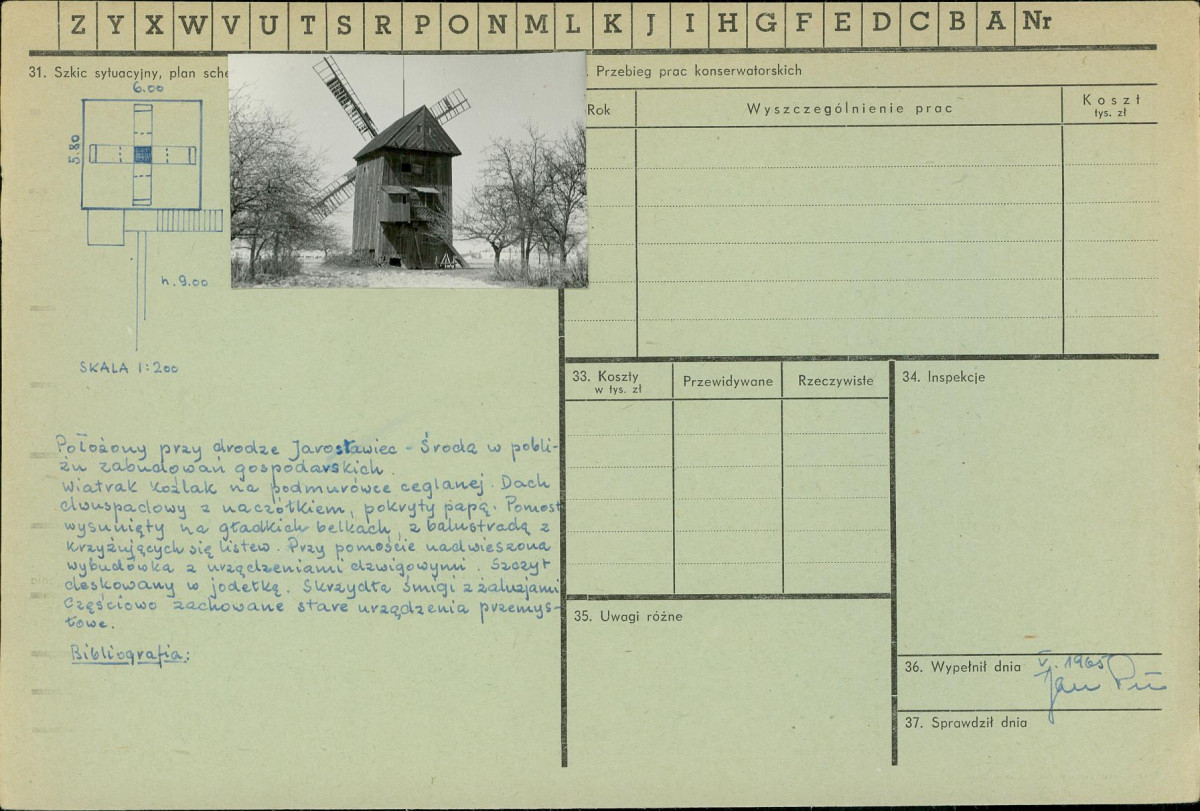 Z Y X W V U T S R P O N M L K J I H G F E D C B A Nr
31. Szkic sytuacyjny, plan
6.00
5.80
h. 9.00
SKALA 1:200
Położony przy drodze Jarosławiec - Środa w pobli-
żu zabudowań gospodarskich.
Wiatrak koźlak na podmurówce ceglanej. Dach
dwuspadowy z naczółkiem, pokryty papą. Pomost
wysunięty na gładkich belkach, z balustradą z
krzyżujących się listew. Przy pomoście nadwieszona
wybudówka z urządzeniami dzwigowymi. Szczyt
deskowany w jodełkę. Skrzydła śmigi z żaluzjami
Częściowo zachowane stare urządzenia przemys-
łowe.
Bibliografia:
Przebieg prac konserwatorskich
Rok
Wyszczególnienie prac
Koszt
tys. zł
33. Koszty
w tys. zł
Przewidywane
Rzeczywiste
34. Inspekcje
35. Uwagi różne
36. Wypełnił dnia V. 1965
Jan
37. Sprawdził dnia